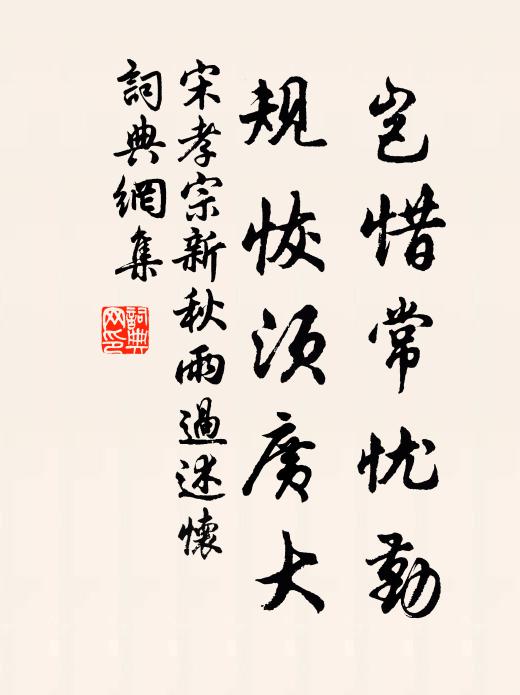 岂惜常忧勤
规恢须廣大
宋孝宗新秋雨過述懷
詞典網集
詞典网印